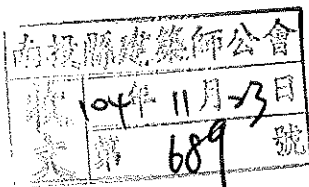 南投縣建築師公會
收文
104年11月23日
第689號